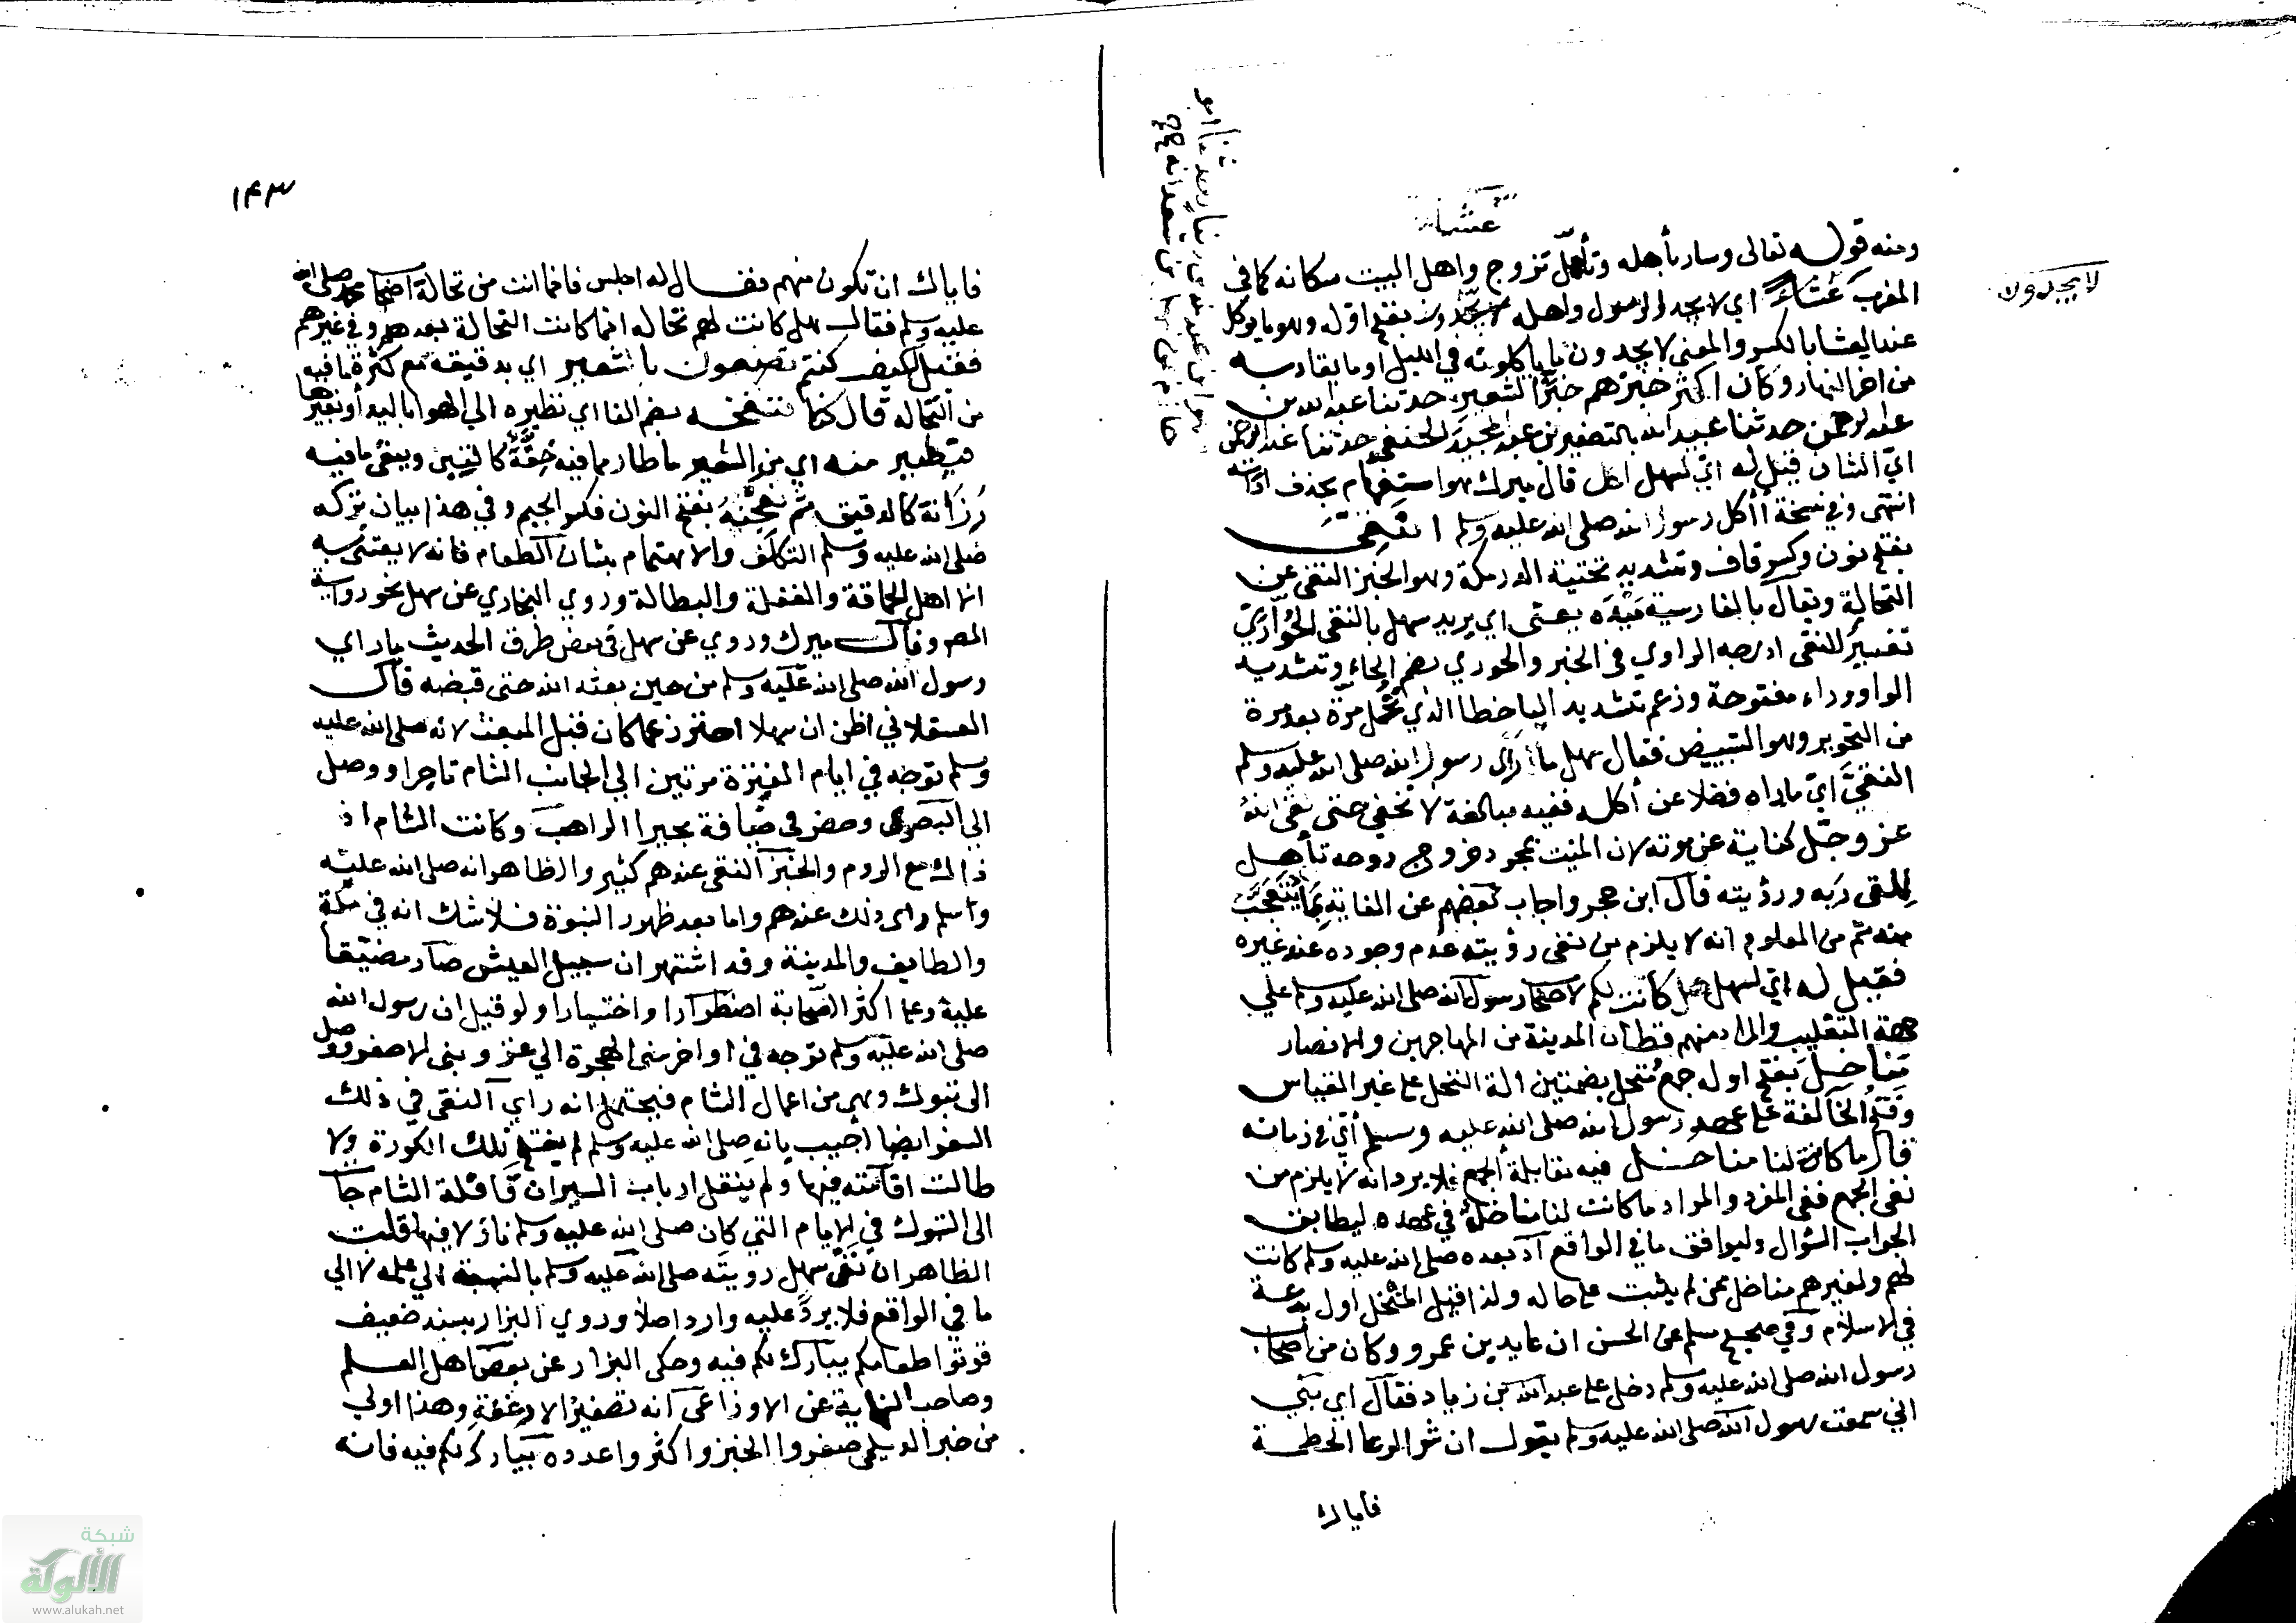 ومنه قوله تعالى وسار بأهله وتأهل تزوج واهل البيت سكانه كما في
المغرب عشاء اي لا يجد الرسول واهله لا يجدون بفتح اوله وهو ما يوكل
عند العشا بالكسر والمعنى لا يجدون ما ياكلونه في الليل او ما يقاربه
من اخر النهار وكان اكثر خبزهم خبز الشعير حدثنا عبد الله بن
عبد الرحمن حدثنا عبيد الله بالتصغير بن عبد المجيد الحنفي حدثنا عبد الرحمن
اي الشان قيل له اي لسهل اكل قال ميرك هو استفهام بحذف اداته
انتهى وفي نسخة أأكل رسول الله صلى الله عليه وسلم النقي
بفتح نون وكسر قاف وتشديد تحتية الدرمكة وهو الخبز النقي عن
النخالة ويقال بالفارسية ميده يعني اي يريد سهل بالنقي الحوارى
تفسير للنقي ادرجه الراوي في الخبر والحورى بضم الحاء وتشديد
الواو وراء مفتوحة وزعم تشديد اليا خطا الذي نخل مرة بعد مرة
من التحوير وهو التبييض فقال سهل ما رأى رسول الله صلى الله عليه وسلم
النقي اي ما راه فضلا عن أكله ففيه مبالغة لا تخفى حتى لقى الله
عز وجل كناية عن موته لان الميت بمجرد خروج روحه تأهل
للقى ربه ورؤيته قال ابن حجر واجاب بعضهم عن الغاية بما يتعجب
منه ثم من المعلوم انه لا يلزم من نفى رؤيته عدم وجوده عند غيره
فقيل له اي لسهل هل كانت لكم لاصحاب رسول الله صلى الله عليه وسلم على
جهة التغليب والمراد منهم قطان المدينة من المهاجرين والانصار
مناخل بفتح اوله جمع منخل بضمتين الة النخل على غير القياس
وفتح الخا لغة على عهد رسول الله صلى الله عليه وسلم أي في زمانه
قال ما كانت لنا مناخل فيه مقابلة الجمع فلا يرد انه لا يلزم من
نفى الجمع نفى المفرد والمراد ما كانت لنا مناخل في عهده ليطابق
الجواب السؤال وليوافق ما في الواقع اذ بعده صلى الله عليه وسلم كانت
لهم ولغيرهم مناخل ممن لم يثبت على حاله ولذا قيل المنخل اول بدعة
في الاسلام وفي صحيح مسلم عن الحسن ان عايد بن عمرو وكان من اصحاب
رسول الله صلى الله عليه وسلم دخل على عبد الله بن زياد فقال اي بني
اني سمعت رسول الله صلى الله عليه وسلم يقول ان شر الرعا الحطمة
فاياك
لا يجدون
عشاء
١٤٣
فاياك ان تكون منهم فقال له اجلس فانما انت من نخالة اصحاب محمد صلى الله
عليه وسلم فقال هل كانت لهم نخالة انما كانت النخالة بعدهم وفي غيرهم
فقيل كيف كنتم تصنعون بالشعير اي بدقيقه مع كثرة ما فيه
من النخالة قال كنا ننفخه بضم الفا اي نطيره الى الهوا باليد أو بغيرها
فيطير منه اي من الشعير ما طار مما فيه خفة كالتبن ويبقى ما فيه
رزانة كالدقيق ثم نعجنه بفتح النون فكسر الجيم وفي هذا بيان تركه
صلى الله عليه وسلم التكلف والاهتمام بشان الطعام فانه لا يعتنى به
الا اهل الحماقة والغفلة والبطالة وروى البخاري عن سهل نحو رواية
المص وقال ميرك وروي عن سهل في بعض طرق الحديث ما راى
رسول الله صلى الله عليه وسلم من حين بعثه الله حتى قبضه قال
العسقلاني اظن ان سهلا احترز عما كان قبل المبعث لانه صلى الله عليه
وسلم توجه في ايام الفترة مرتين الى الجانب الشام تاجرا ووصل
الى البصرى وحضر في ضيافة بحيرا الراهب وكانت الشام اذ
ذاك مع الروم والخبز النقي عندهم كثير والظاهر انه صلى الله عليه
وسلم راى ذلك عندهم واما بعد ظهور النبوة فلا شك انه في مكة
والطايف والمدينة وقد اشتهر ان سبيل العيش صار مضيقا
عليه وعلى اكثر الصحابة اضطرارا واختيارا ولو قيل ان رسول الله
صلى الله عليه وسلم توجه في اواخر سني الهجرة الى غزو بنى الاصفر ووصل
الى تبوك وهي من اعمال الشام فيحتمل انه راى النقي في ذلك
السفر ايضا أجيب بانه صلى الله عليه وسلم لم يفتح تلك الكورة ولا
طالت اقامته فيها ولم ينقل ارباب السير ان قافلة الشام جات
الى التبوك في الايام التي كان صلى الله عليه وسلم نازلا فيها قلت
الظاهر ان نفى سهل رويته صلى الله عليه وسلم بالنسبة الى علمه لا الى
ما في الواقع فلا يرد عليه وارد اصلا وروي البزار بسند ضعيف
قوتوا طعامكم يبارك لكم فيه وحكى البزار عن بعض اهل العلم
وصاحب النهاية عن الاوزاعي انه تصغير الارغفة وهذا اولى
من خبر الديلمي صغروا الخبز واكثروا عدده يبارك لكم فيه فانه
شبكة
الألوكة
www.alukah.net